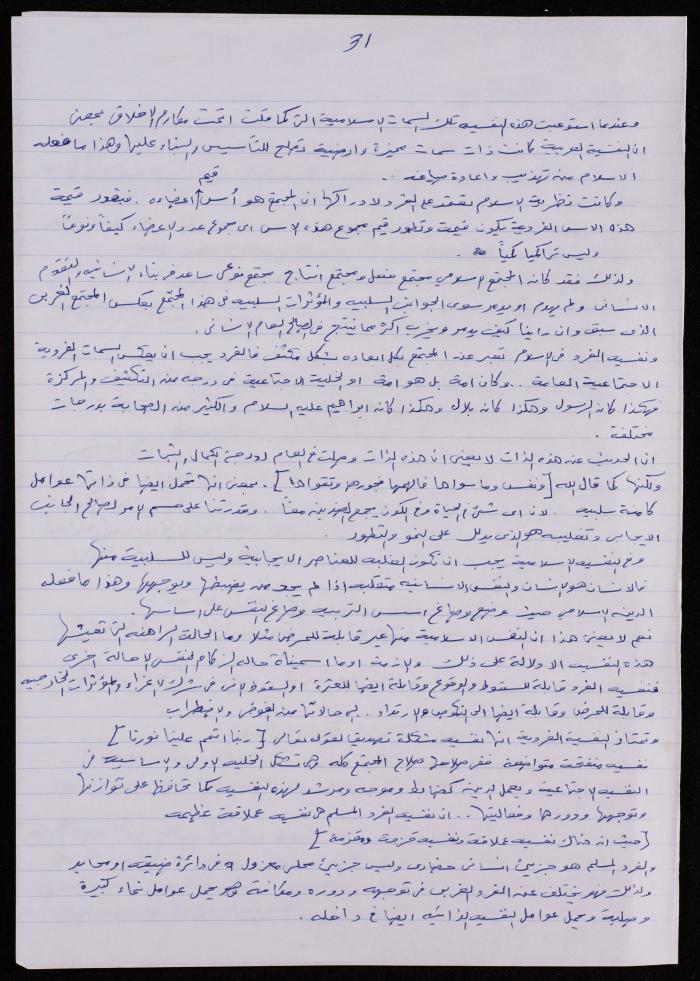 31
وعندما استوعبت هذه النفسيه تلك السمات الاسلامية التي كما قلت اتمت مكارم الاخلاق بمعنى
ان النفسية العربية كانت ذات سمات مميزة وارضية تصلح للتأسيس والبناء عليها وهذا ما فعله
الاسلام من تهذيب واعادة صياغة ..
قيم
وكانت نظرية الاسلام تعتمد على الفرد لادراكها ان المجتمع هو أسس اعضاءه . فبقدر قيمة
هذه الاسس الفردية تكون قيمة وتطور قيم مجموع هذه الاسس اى مجموع عدد الاعضاء كيفاً ونوعاً
وليس تراكمياً كمياً .
ولذلك فقد كان المجتمع الإسلامي مجتمع منفعل ومجتمع انتاج مجتمع نوعي ساعد في بناء الانسانيه والتقدم
الانسانى ولم يهدم او يدمر سوى الجوانب السلبيه والمؤثرات السلبيه فى هذا المجتمع بعكس المجتمع الغربى
الذى سبق وان راينا كيف يدمر ويخرب اكثر مما ينتج في الصالح العام الانسانى .
ونفسية الفرد فى الاسلام تعبر عن المجتمع بكل ابعاده بشكل مكثف فالفرد يجب ان يعكس السمات الفردية
الاجتماعية العامة .. وكان امة بل هو امة او الخلية الاجتماعية فى درجه من التكثيف والمركزة
فهكذا كان الرسول وهكذا كان بلال وهكذا كان ابراهيم عليه السلام والكثير من الصحابة بدرجات
مختلفة .
ان الحديث عن هذه الذات لا يعنى ان هذه الذات وصلت فى العام لدرجة الكمال والثبات
ولكنها كما قال الله [ونفس وما سواها فالهمها فجورها وتقواها] . بمعنى انها تحمل ايضا فى ذاتها عوامل
كامنة سلبيه . لان اى شئ فى الحياة وفى الكون يجمع الضدين معاً . وقدرتنا على حسم الامر لصالح الجانب
الايجابى وتغليبه هو الذى يدلل على النمو والتطور .
وفى النفسيه الاسلامية يجب ان تكون الغلبه للعناصر الايجابية وليس للسلبية منها
فالانسان هو الانسان والنفس الانسانيه متقلبه اذا لم يجد من يضبطها ويوجهها وهذا ما فعله
الدين الاسلامي حيث وضع وصاغ اسس التربيه وصاغ النفس على اساسها .
نعم لا يعنى هذا ان النفس الاسلامية منها غير قابلة للمرض مثلا وما الحالة الراهنه التى تعيشها
هذه النفسيه الا دلالة على ذلك والازمة او ما اسميناه حاله الزكام النفسى الا حالة اخرى
فنفسية الفرد قابلة للسقوط والوقوع وقابلة ايضا للعثرة او السقوط لانى فى شرك الاغراء والمؤثرات الخارجيه
وقابلة للمرض وقابلة ايضا الى النكوص والارتداد .. الى حالاتها من الفوضى والاضطراب
وتمتاز النفسية الفردية انها نفسيه متشكلة تصديقا لقوله تعالى [ربنا اتمم علينا نورنا]
نفسيه منفتحة متواضعة ففى صلاحها صلاح المجتمع كله فهى تشكل الخليه الاولى والاساسيه فى
النفسيه الاجتماعيه ويعمل الدين كضابط وموجه ومرشد لهذه النفسيه كما تحافظ على توازنها
وتوجهها ودورها وفعاليتها .. ان نفسية الفرد المسلم هى نفسيه عملاقة عظيمه
[حيث ان هناك نفسيه عملاقة ونفسيه قزمة ومقزمة]
والفرد المسلم هو جزيئ انسانى حضارى وليس جزيئ محلى معزول فى دائرة ضيقه او محايد
ولذلك فهو يختلف عن الفرد الغربى فى توجهه ودوره ومكانته وهو يحمل عوامل نماء كبيرة
وصلبة ويحمل عوامل النفسيه الذاتيه ايضا فى داخله .